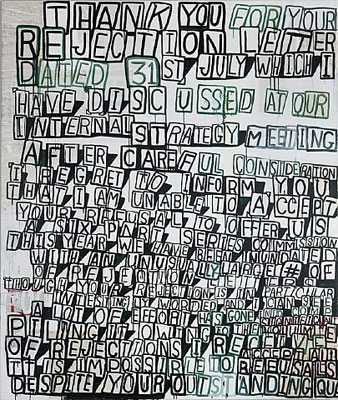 THANK YOU FOR YOUR
REJECTION LETTER
DATED 31ST JULY WHICH I
HAVE DISCUSSED AT OUR
INTERNAL STRATEGY MEETING
AFTER CAREFUL CONSIDERATION
I REGRET TO INFORM YOU
THAT I AM UNABLE TO ACCEPT
YOUR REFUSAL TO OFFER US
A SIX PART SERIES COMMISSION
THIS YEAR WE HAVE BEEN INUNDATED
WITH AN UNUSUALLY LARGE # OF
OF REJECTION
THOUGH YOUR REJECTION IS IN PARTICULAR
INTERESTINGLY WORDED AND I CAN SEE
A LOT OF EFFORT HAS GONE INTO
PILING IT OWING TO THE VOLUME
OF REJECTIONS I REGRET WE
ACCEPT ALL
IT IS IMPOSSIBLE TO REFUSALS
DESPITE YOUR OUTSTANDING QU